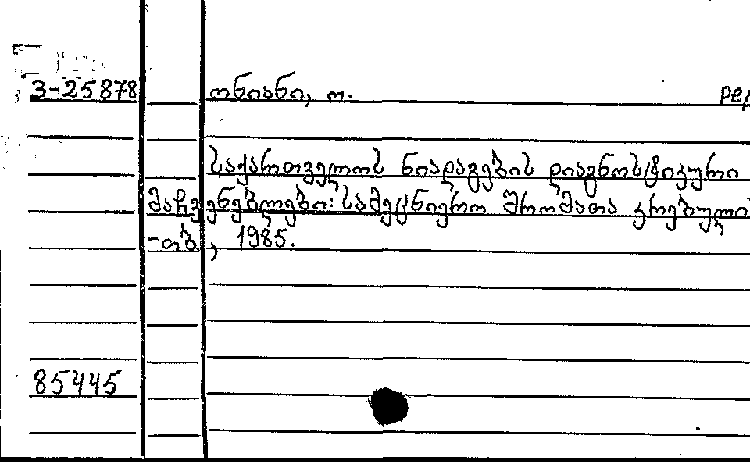 3-25878 ონიანი, ო. рер
საქართველოს ნიადაგების დიაგნოსტიკური
მაჩვენებლები: სამეცნიერო შრომათა კრებული
-თბ, 1985.
85445